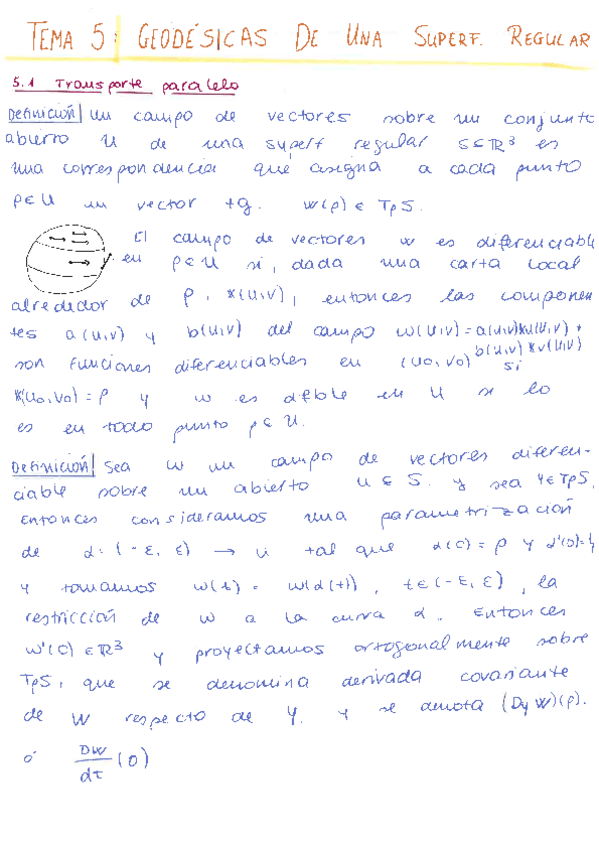 TEMA 5: GEODÉSICAS DE UNA SUPERF. REGULAR
5.1 Transporte paralelo
Definición| Un campo de vectores sobre un conjunto
abierto U de una superf regular S⊆ℝ³ es
una correspondencia que asigna a cada punto
p∈U un vector tg. w(p) ∈ TpS.
El campo de vectores w es diferenciable
en p∈U si, dada una carta local
alrededor de p, 𝕏(u,v), entonces las componen
tes a(u,v) y b(u,v) del campo w(u,v) = a(u,v)𝕏u(u,v) +
b(u,v) 𝕏v(u,v)
son funciones diferenciables en (u0,v0) si
𝕏(u0,v0) = p y w es dfble en U si lo
es en todo punto p∈U.
Definición| Sea w un campo de vectores diferen-
ciable sobre un abierto U⊆S. y sea Y∈TpS,
Entonces consideramos una parametrización
de α: (-ε, ε) → U tal que α(0) = p y α'(0)=Y
y tomamos w(t) = w(α(t)), t∈(-ε, ε), la
restricción de w a la curva α. Entonces
w'(0) ∈ℝ³ y proyectamos ortogonalmente sobre
TpS, que se denomina derivada covariante
de w respecto de Y. y se denota (Dy w)(p).
ó DW/dt (0)